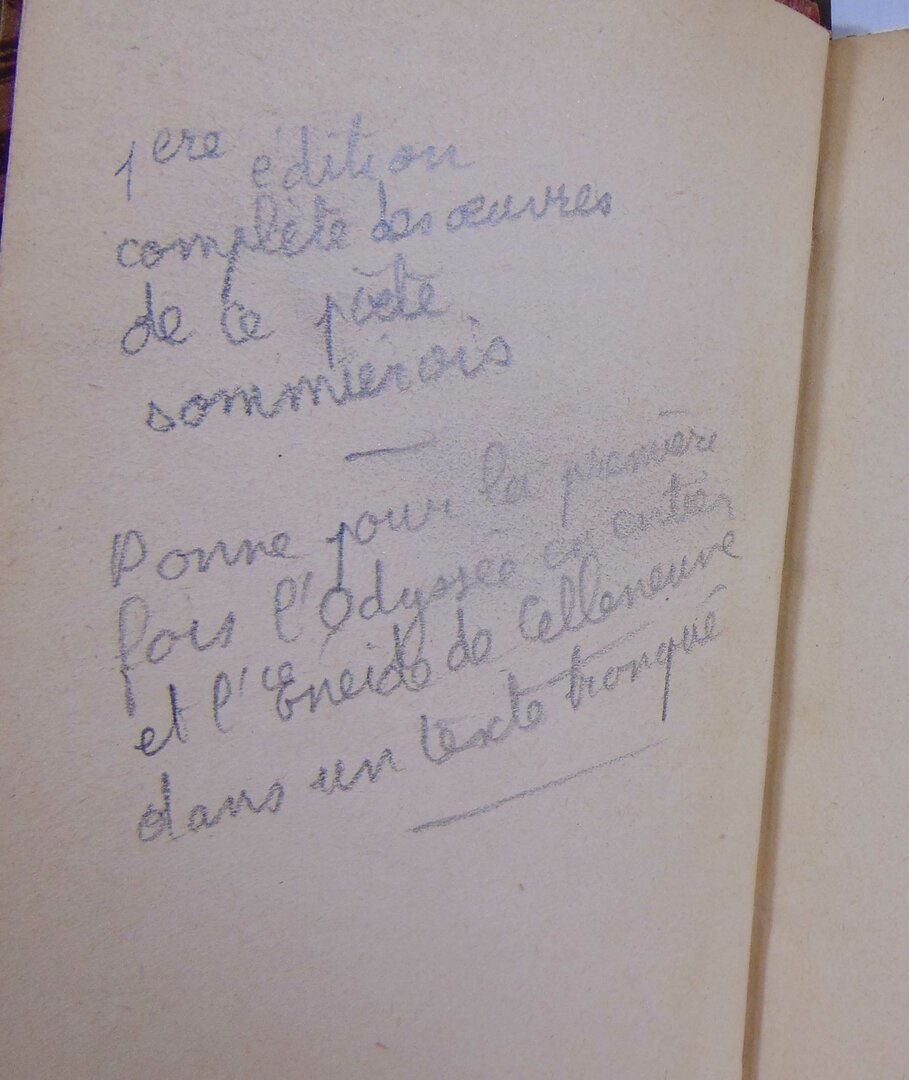 1ere édition
complète des œuvres
de ce poète
sommiérois
—
Donne pour la première
fois l'Odyssée en entier
et l'Eneide de Celleneuve
dans un texte tronqué